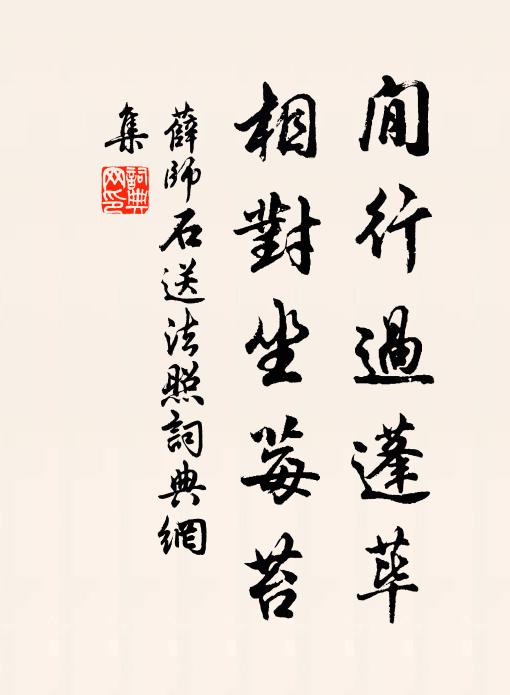 閒行過蓬蓽
相對坐莓苔
薛師石送法照詞典網
集
詞典網印